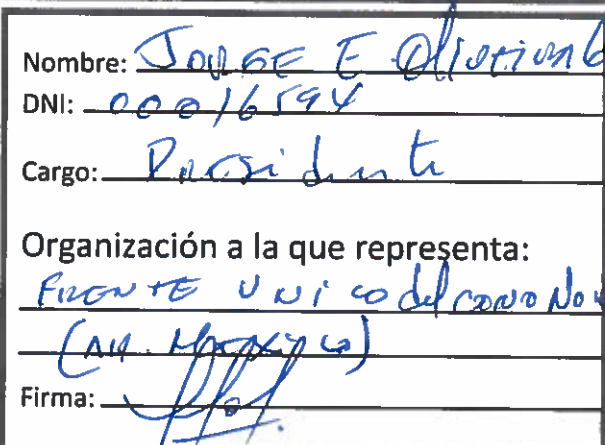 Nombre: JORGE E
DNI: 00016594
Cargo: Presidente
Organización a la que representa:
FRENTE UNICO del cono No
(AH.
Firma: